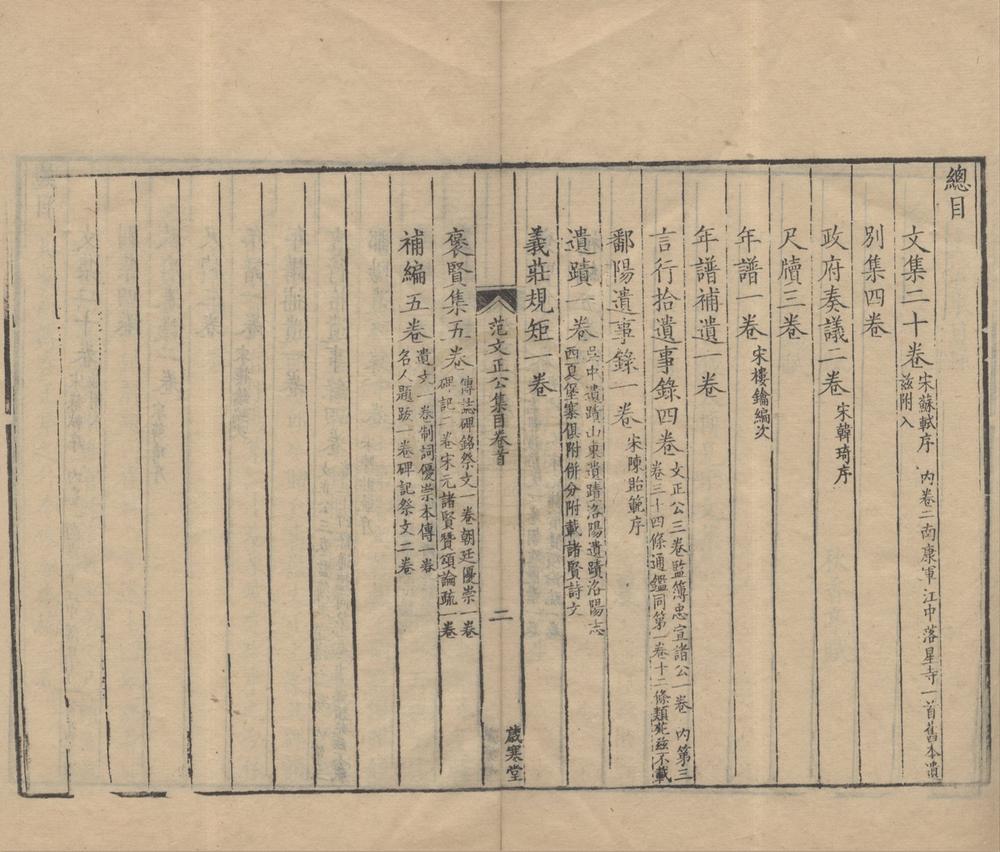 總目
文集二十卷 宋蘇軾序 內卷二南康軍江中落星寺一首舊本遺
茲附入
別集四卷
政府奏議二卷 宋韓琦序
尺牘三卷
年譜一卷 宋樓鑰編次
年譜補遺一卷
言行拾遺事錄四卷 文正公三卷監簿忠宣諸公一卷 內第三
卷三十四條通鑑同第一卷十二條類苑茲不載
鄱陽遺事錄一卷 宋陳貽範序
遺蹟一卷 吳中遺蹟山東遺蹟洛陽遺蹟洛陽志
西夏堡寨俱附併分附載諸賢詩文
義莊規矩一卷
范文正公集目卷首 二 歲寒堂
褒賢集五卷 傳誌碑銘祭文一卷朝廷優崇一卷
碑記二卷宋元諸賢贊頌論疏一卷
補編五卷 遺文一卷制詞優崇本傳一卷
名人題跋一卷碑記祭文二卷